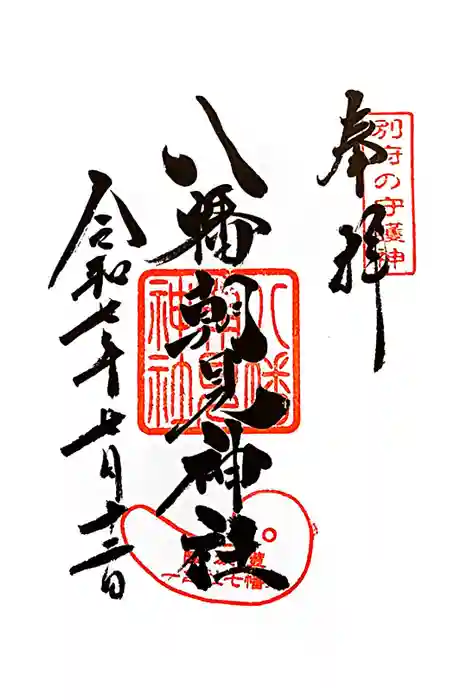 別府の守護神
奉拝
八幡朝見神社
八幡朝見神社
令和七年七月十二日